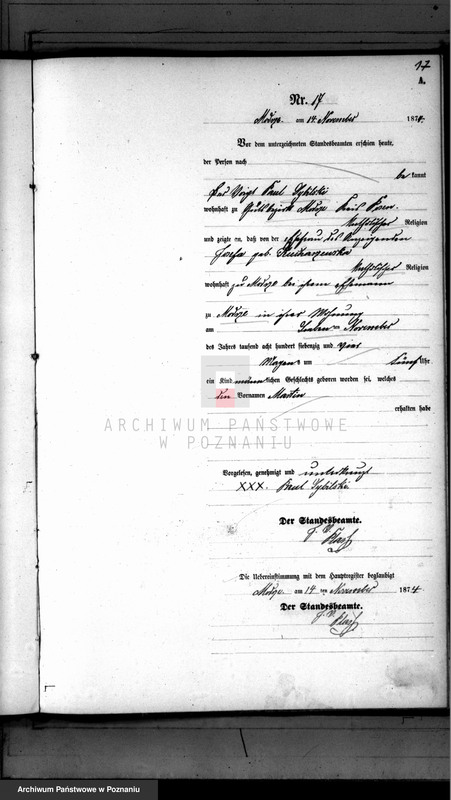 17
A.
Nr. 17
am 14. November 1874.
Vor dem unterzeichneten Standesbeamten erschien heute,
der Person nach
be kannt
Paul Sybilski
wohnhaft zu Gutsbezirk Kreis Posen
katholischer Religion
und zeigte an, daß von der Ehefrau des Anzeigenden
Josefa geb.
katholischer Religion
wohnhaft zu bei ihrem Ehemann
zu in ihrer Wohnung
am Sieben ten November
des Jahres tausend acht hundert siebenzig und vier
Morgens um fünf Uhr
ein Kind männlichen Geschlechts geboren worden sei, welches
den Vornamen Martin
erhalten habe
ARCHIWUM PAŃSTWOWE
W POZNANIU
Vorgelesen, genehmigt und unterkreuzt
XXX. Paul Sybilski
Der Standesbeamte.
Die Uebereinstimmung mit dem Hauptregister beglaubigt
am 14 ten November 1874.
Der Standesbeamte.
Archiwum Państwowe w Poznaniu